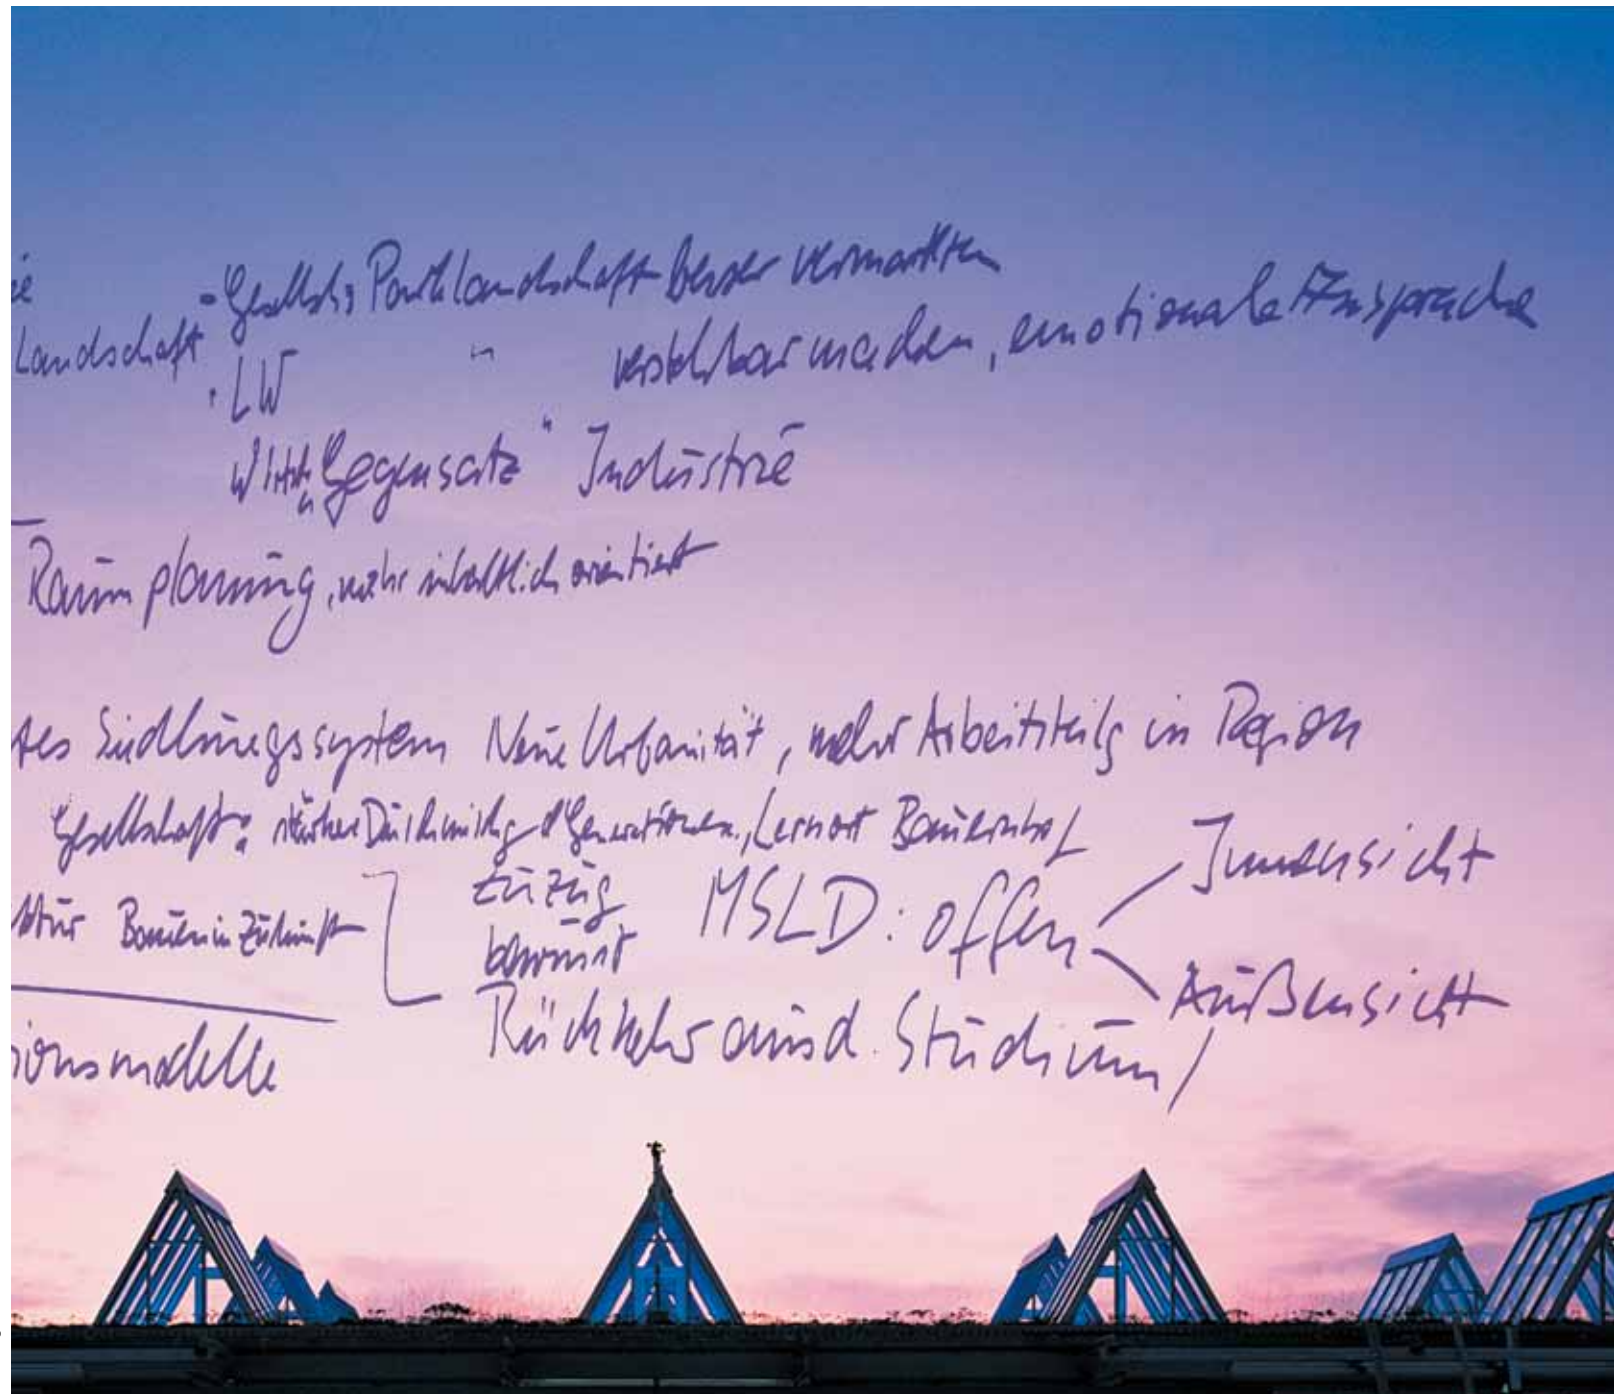 ie
Landschaft - Gesellsch. Parklandschaft besser vermarkten
· LW " verstehbar machen, emotionale Ansprache
Wirtsch. „Gegensatz" Industrie
Raumplanung, mehr inhaltlich orientiert
tes Siedlungssystem Neue Urbanität, mehr Arbeitsteilg in Region
Gesellschaft: Durchmischg d Generationen, Lernort Bauernhof
ktur Bauen in Zukunft
Zuzug
bewusst
MSLD: offen
Innensicht
Außensicht
ionsmodelle
Rückkehr aus d. Studium/